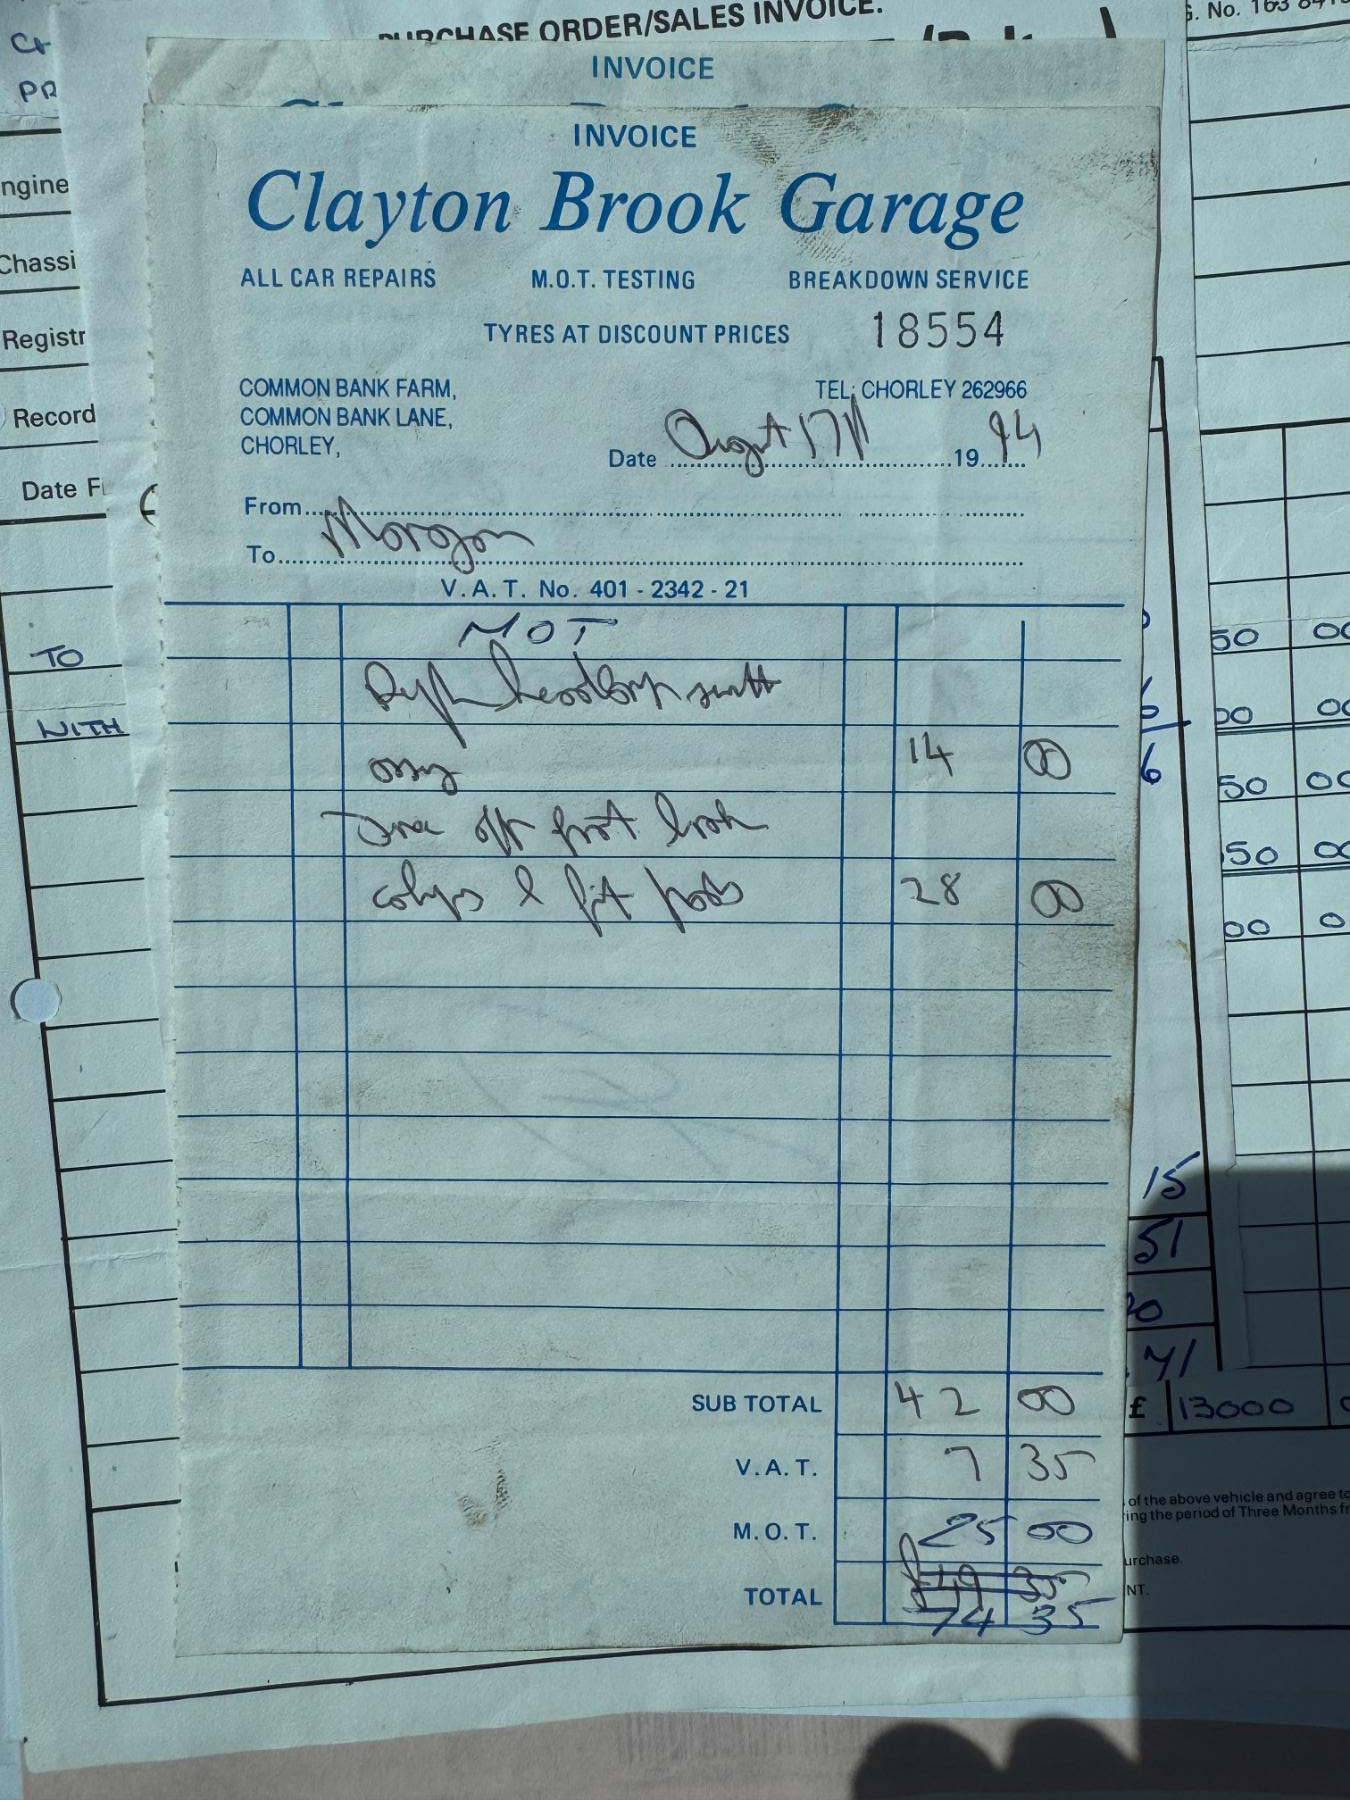 PURCHASE ORDER/SALES INVOICE.
G. No. 163
INVOICE
INVOICE
Clayton Brook Garage
ALL CAR REPAIRS M.O.T. TESTING BREAKDOWN SERVICE
TYRES AT DISCOUNT PRICES 18554
COMMON BANK FARM, TEL: CHORLEY 262966
COMMON BANK LANE,
CHORLEY,
Date August 17th 1994
From
To Morgan
V.A.T. No. 401 - 2342 - 21
MOT
headlamp
14 00
off front
& fit pads 28 00
SUB TOTAL 42 00
V.A.T. 7 35
M.O.T. 25 00
£49 35
TOTAL 74 35
ngine
Chassi
Registr
Record
Date F
TO
WITH
50 00
00 00
50 00
50 00
00 0
6
15
51
20
71
£ 13000
of the above vehicle and agree to
ing the period of Three Months fr
urchase.
NT.